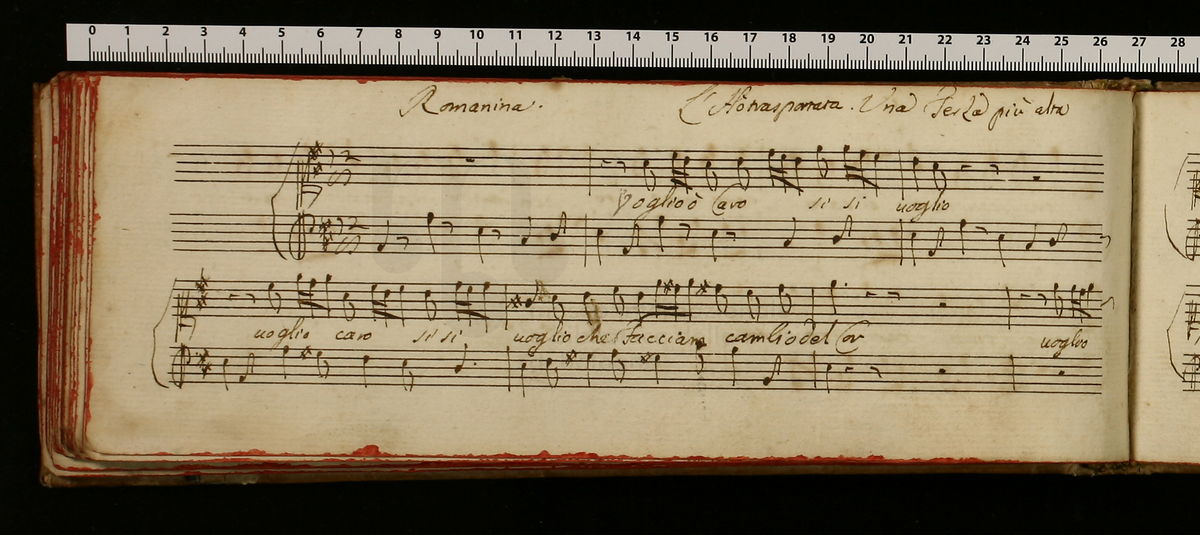 0 1 2 3 4 5 6 7 8 9 10 11 12 13 14 15 16 17 18 19 20 21 22 23 24 25 26 27 28
Romanina. L'Hò trasportata. Una Terza più alta
Voglio ò Caro si si uoglio
uoglio caro si si uoglio che facciam cambio del Cor uoglio